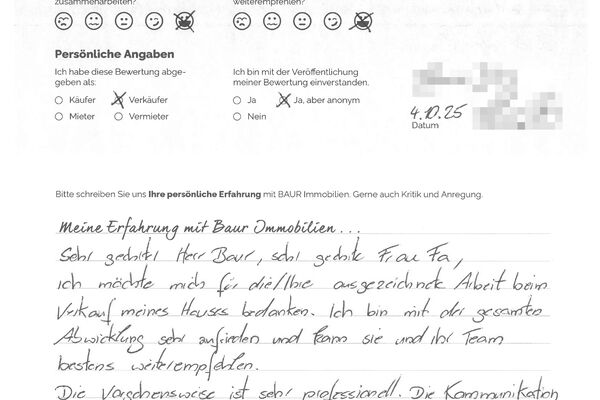 zusammenarbeiten?
weiterempfehlen?
Persönliche Angaben
Ich habe diese Bewertung abge-
geben als:
Käufer Verkäufer
Mieter Vermieter
Ich bin mit der Veröffentlichung
meiner Bewertung einverstanden.
Ja Ja, aber anonym
Nein
4.10.25
Datum
Bitte schreiben Sie uns Ihre persönliche Erfahrung mit BAUR Immobilien. Gerne auch Kritik und Anregung.
Meine Erfahrung mit Baur Immobilien...
Sehr geehrter Herr Baur, sehr geehrte Frau Fa,
ich möchte mich für die/Ihre ausgezeichnete Arbeit beim
Verkauf meines Hauses bedanken. Ich bin mit der gesamten
Abwicklung sehr zufrieden und kann sie und ihr Team
bestens weiterempfehlen.
Die Vorgehensweise ist sehr professionell. Die Kommunikation